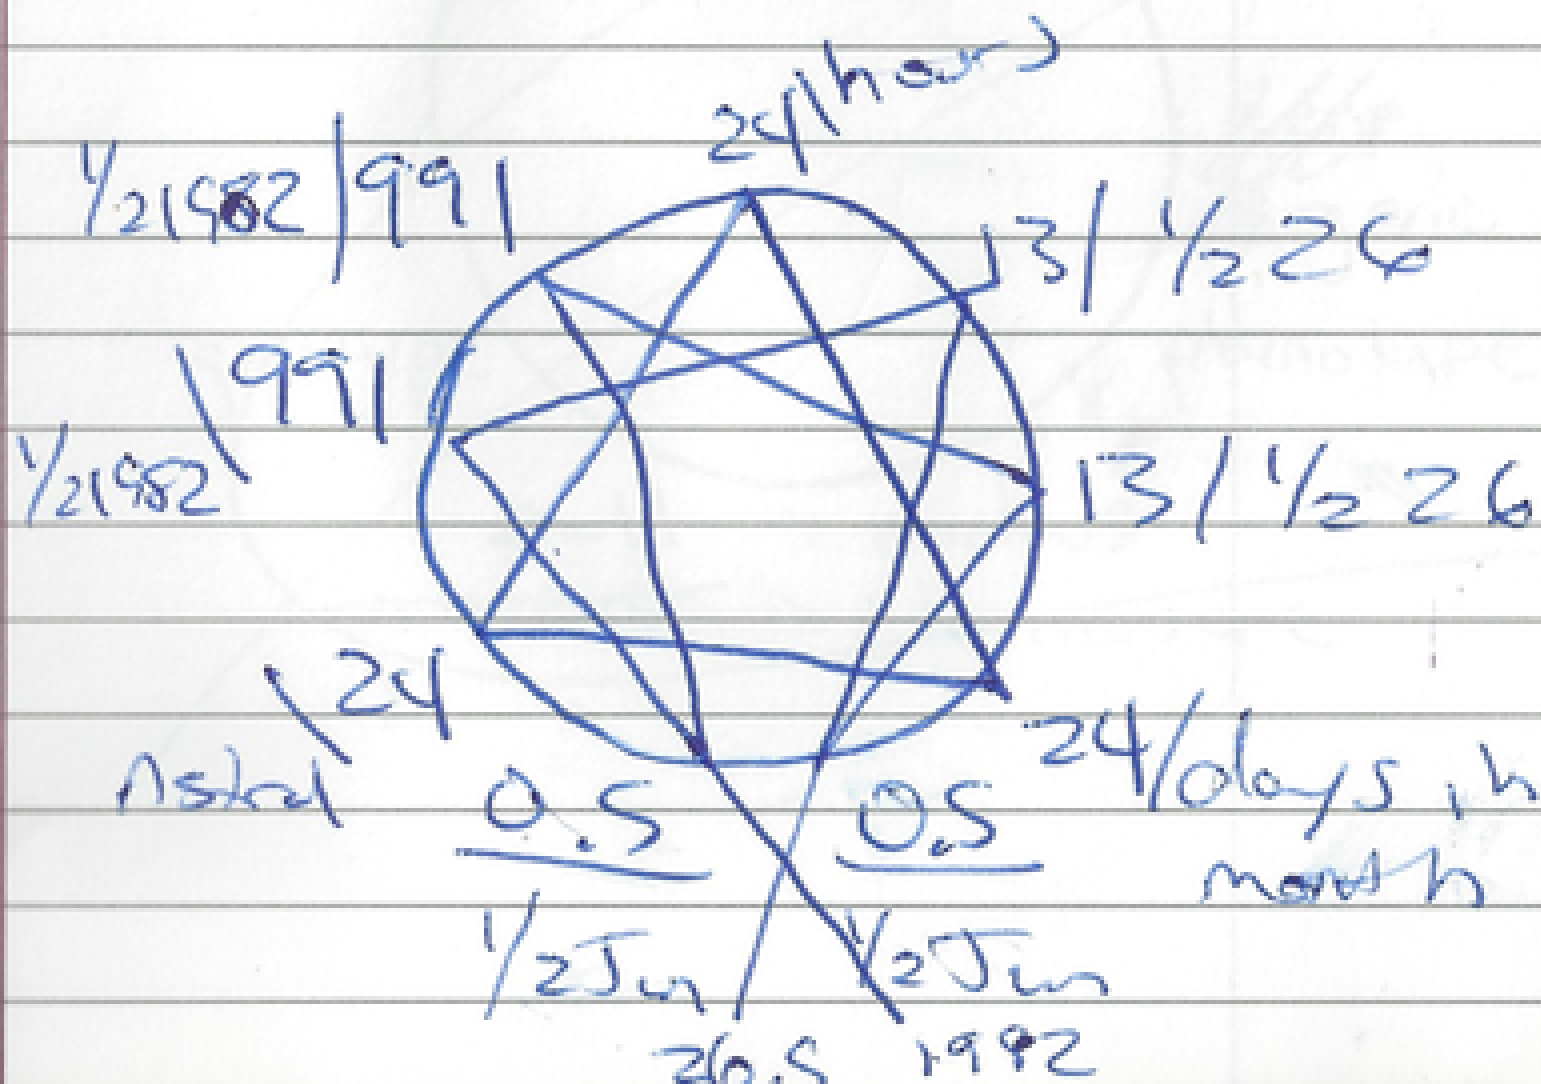 24/hours
1/2 1982 | 991
13 / 1/2 26
991
1/2 1982
13 / 1/2 26
24
24/days in
month
0.5 0.5
1/2 Jun 1/2 Jun
26.5 1992